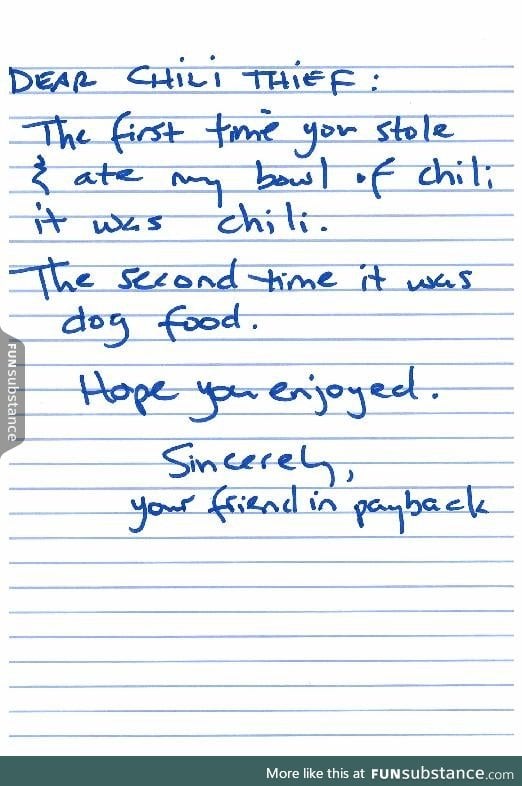 DEAR CHILI THIEF:
The first time you stole
& ate my bowl of chili
it was chili.
The second time it was
dog food.
Hope you enjoyed.
Sincerely,
your friend in payback
FUNsubstance
More like this at FUNsubstance.com